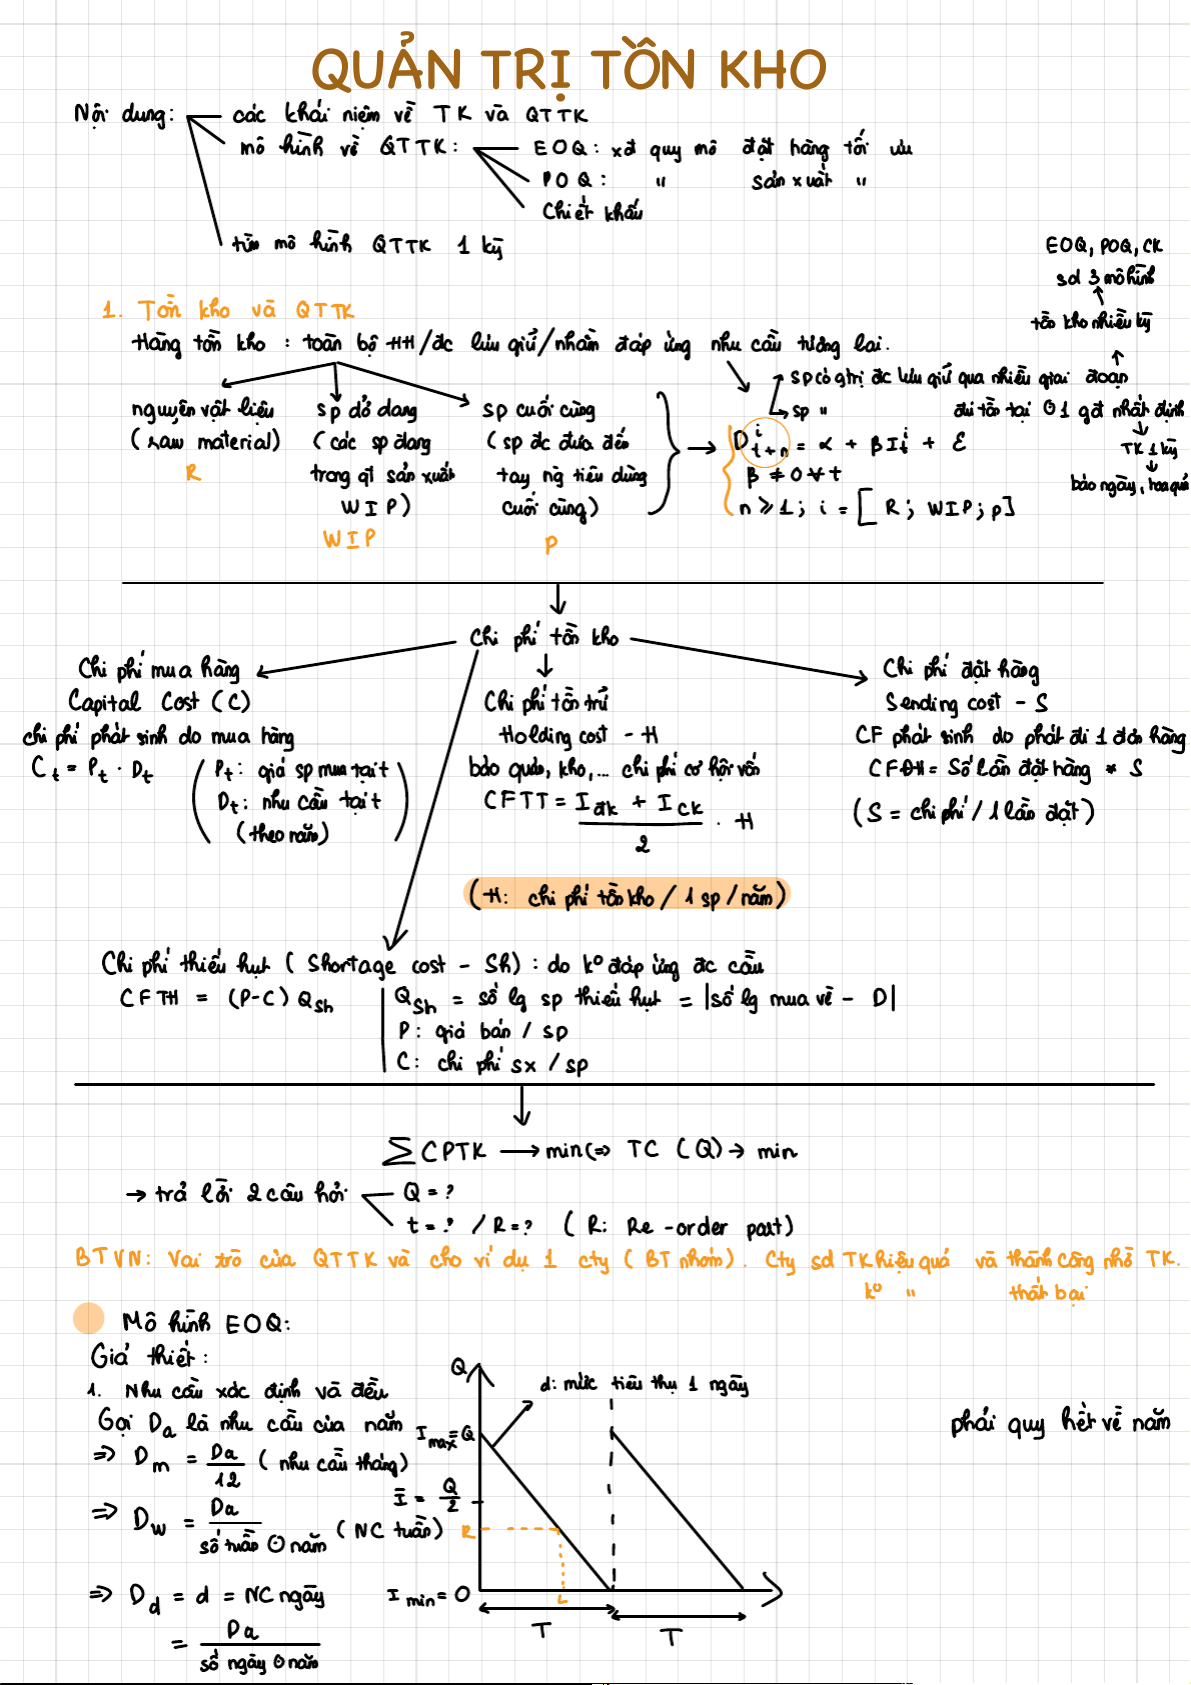 QUẢN TRỊ TỒN KHO
Nội dung: các khái niệm về TK và QTTK
mô hình về QTTK: EOQ: xđ quy mô đặt hàng tối ưu
POQ: " sản xuất "
Chiết khấu
tìm mô hình QTTK 1 kỳ
EOQ, POQ, CK
sd 3 mô hình
tồn kho nhiều kỳ
1. Tồn kho và QTTK
Hàng tồn kho : toàn bộ HH/đc lưu giữ/nhằm đáp ứng nhu cầu tương lai.
sp có gtrị đc lưu giữ qua nhiều giai đoạn
sp " chỉ tồn tại ở 1 gđ nhất định
TK 1 kỳ
báo ngày, hoa quả
nguyên vật liệu
(raw material)
R
sp dở dang
(các sp đang
trong qt sản xuất
WIP)
WIP
sp cuối cùng
(sp đc đưa đến
tay ng tiêu dùng
cuối cùng)
P
D^i_{t+n} = α + βI^i_t + ε
β ≠ 0 ∀ t
n ≥ 1; i = [R; WIP; P]
Chi phí tồn kho
Chi phí mua hàng
Capital Cost (C)
chi phí phát sinh do mua hàng
C_t = P_t . D_t
(P_t: giá sp mua tại t
D_t: nhu cầu tại t
(theo năm))
Chi phí tồn trữ
Holding cost - H
bảo quản, kho,... chi phí cơ hội vốn
CFTT = (I_đk + I_ck)/2 . H
(H: chi phí tồn kho / 1 sp / năm)
Chi phí đặt hàng
Sending cost - S
CF phát sinh do phát đi 1 đơn hàng
CFĐH = Số lần đặt hàng * S
(S = chi phí / 1 lần đặt)
Chi phí thiếu hụt (Shortage cost - Sh) : do k° đáp ứng đc cầu
CFTH = (P-C) Q_sh
Q_sh = số lg sp thiếu hụt = |số lg mua về - D|
P: giá bán / sp
C: chi phí sx / sp
∑ CPTK → min <=> TC (Q) → min
→ trả lời 2 câu hỏi Q = ?
t = ? / R = ? (R: Re-order point)
BTVN: Vai trò của QTTK và cho ví dụ 1 cty (BT nhóm). Cty sd TK hiệu quả và thành công nhờ TK.
k° " thất bại
Mô hình EOQ:
Giả thiết:
1. Nhu cầu xác định và đều
Gọi D_a là nhu cầu của năm
=> D_m = D_a/12 (nhu cầu tháng)
=> D_w = D_a/số tuần ở năm (NC tuần)
=> D_d = d = NC ngày
= D_a/số ngày ở năm
Q
d: mức tiêu thụ 1 ngày
I_max = Q
Ī = Q/2
R
L
I_min = 0
T
T
phải quy hết về năm